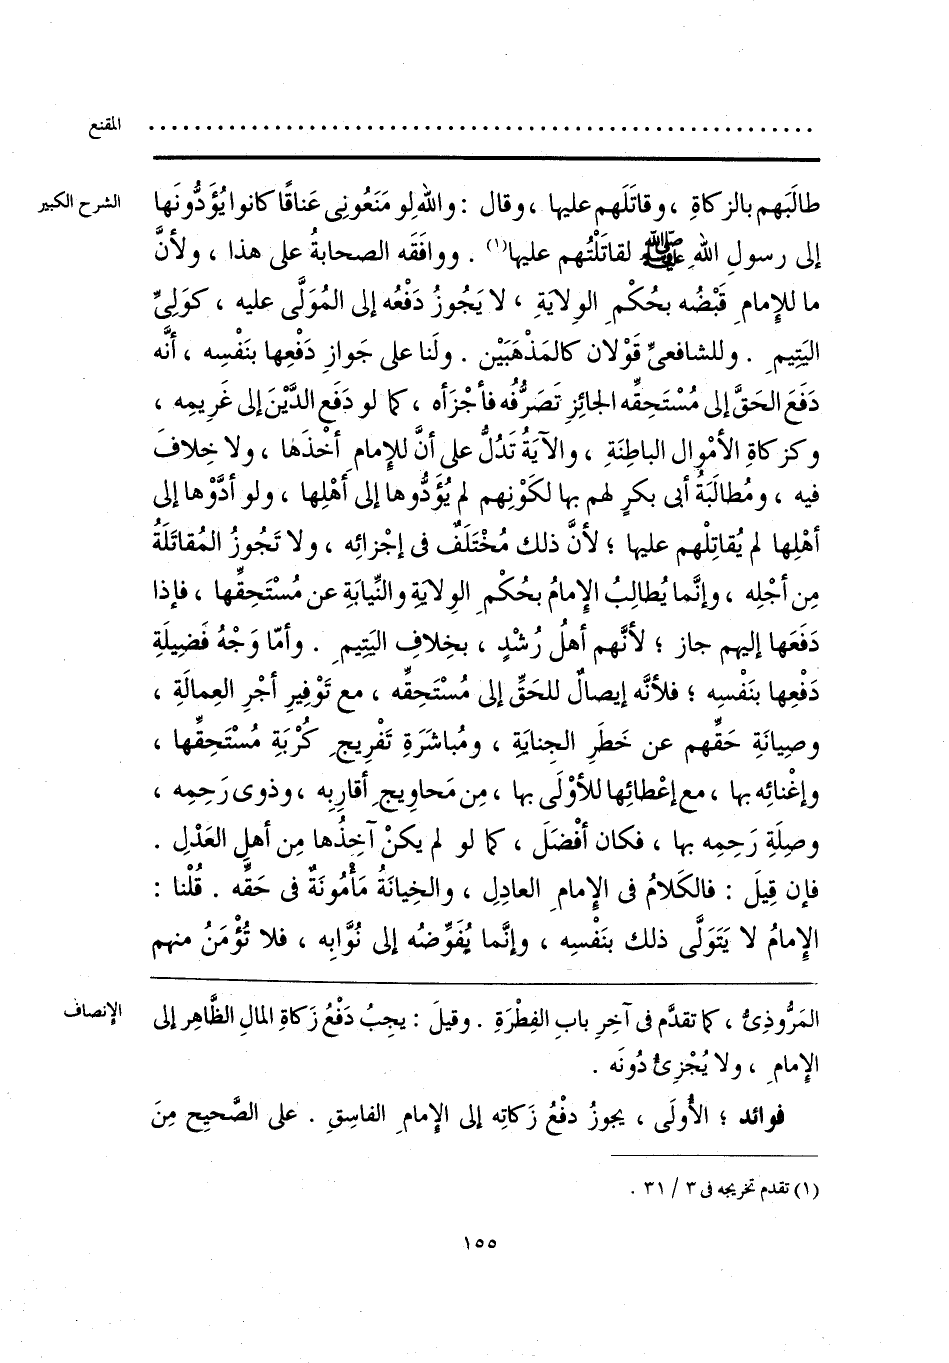 المقنع ........................................................
الشرح الكبير
طالَبَهم بالزكاةِ ، وقاتَلَهم عليها ، وقال : واللهِ لو مَنَعُونِى عَناقًا كانوا يُؤَدُّونَها
إلى رسولِ اللهِ ﷺ لقاتَلْتُهم عليها(١) . ووافَقَه الصحابةُ على هذا ، ولأنَّ
ما للإِمامِ قَبْضُه بحُكْمِ الوِلايَةِ ، لا يَجُوزُ دَفْعُه إلى المُوَلَّى عليه ، كوَلِىِّ
اليَتِيمِ . وللشافعىِّ قَوْلان كالمَذْهَبَيْن . ولَنا على جَوازِ دَفْعِها بنَفْسِه ، أنَّه
دَفَعَ الحَقَّ إلى مُسْتَحِقِّه الجائزِ تَصَرُّفُه فأجْزَأه ، كما لو دَفَع الدَّيْنَ إلى غَرِيمِه ،
وكزكاةِ الأمْوالِ الباطِنَةِ ، والآيَةُ تَدُلُّ على أنَّ للإِمامِ أخْذَها ، ولا خِلافَ
فيه ، ومُطالَبَةُ أبى بكرٍ لهم بها لكَوْنِهم لم يُؤَدُّوها إلى أهْلِها ، ولو أدَّوْها إلى
أهْلِها لم يُقاتِلْهم عليها ؛ لأنَّ ذلك مُخْتَلَفٌ فى إجْزائِه ، ولا تَجُوزُ المُقاتَلَةُ
مِن أجْلِه ، وإنَّما يُطالِبُ الإِمامُ بحُكْمِ الوِلايَةِ والنِّيابَةِ عن مُسْتَحِقِّها ، فإذا
دَفَعَها إليهم جاز ؛ لأنَّهم أهلُ رُشْدٍ ، بخِلافِ اليَتِيمِ . وأمّا وَجْهُ فَضِيلَةِ
دَفْعِها بنَفْسِه ؛ فلأنَّه إيصالٌ للحَقِّ إلى مُسْتَحِقِّه ، مع تَوْفِيرِ أجْرِ العِمالَةِ ،
وصِيانَةِ حَقِّهم عن خَطَرِ الجِنايَةِ ، ومُباشَرَةِ تَفْرِيجِ كُرْبَةِ مُسْتَحِقِّها ،
وإغْنائِه بها ، مع إعْطائِها للأوْلَى بها ، مِن مَحاوِيجِ أقارِبِه ، وذوى رَحِمِه ،
وصِلَةِ رَحِمِه بها ، فكان أفْضَلَ ، كما لو لم يكنْ آخِذُها مِن أهلِ العَدْلِ .
فإن قِيلَ : فالكَلامُ فى الإِمامِ العادِلِ ، والخِيانَةُ مَأْمُونَةٌ فى حَقِّه . قُلْنا :
الإِمامُ لا يَتَوَلَّى ذلك بنَفْسِه ، وإنَّما يُفَوِّضُه إلى نُوَّابِه ، فلا تُؤْمَنُ منهم
الإنصاف
المَرُّوذِىُّ ، كما تقدَّم فى آخِرِ بابِ الفِطْرَةِ . وقيلَ : يجِبُ دَفْعُ زَكاةِ المالِ الظَّاهِرِ إلى
الإِمامِ ، ولا يُجْزِئُ دُونَه .
فوائد ؛ الأُولَى ، يجوزُ دفْعُ زَكاتِه إلى الإِمامِ الفاسِقِ . على الصَّحيحِ مِنَ
(١) تقدم تخريجه فى ٣ / ٣١ .
١٥٥